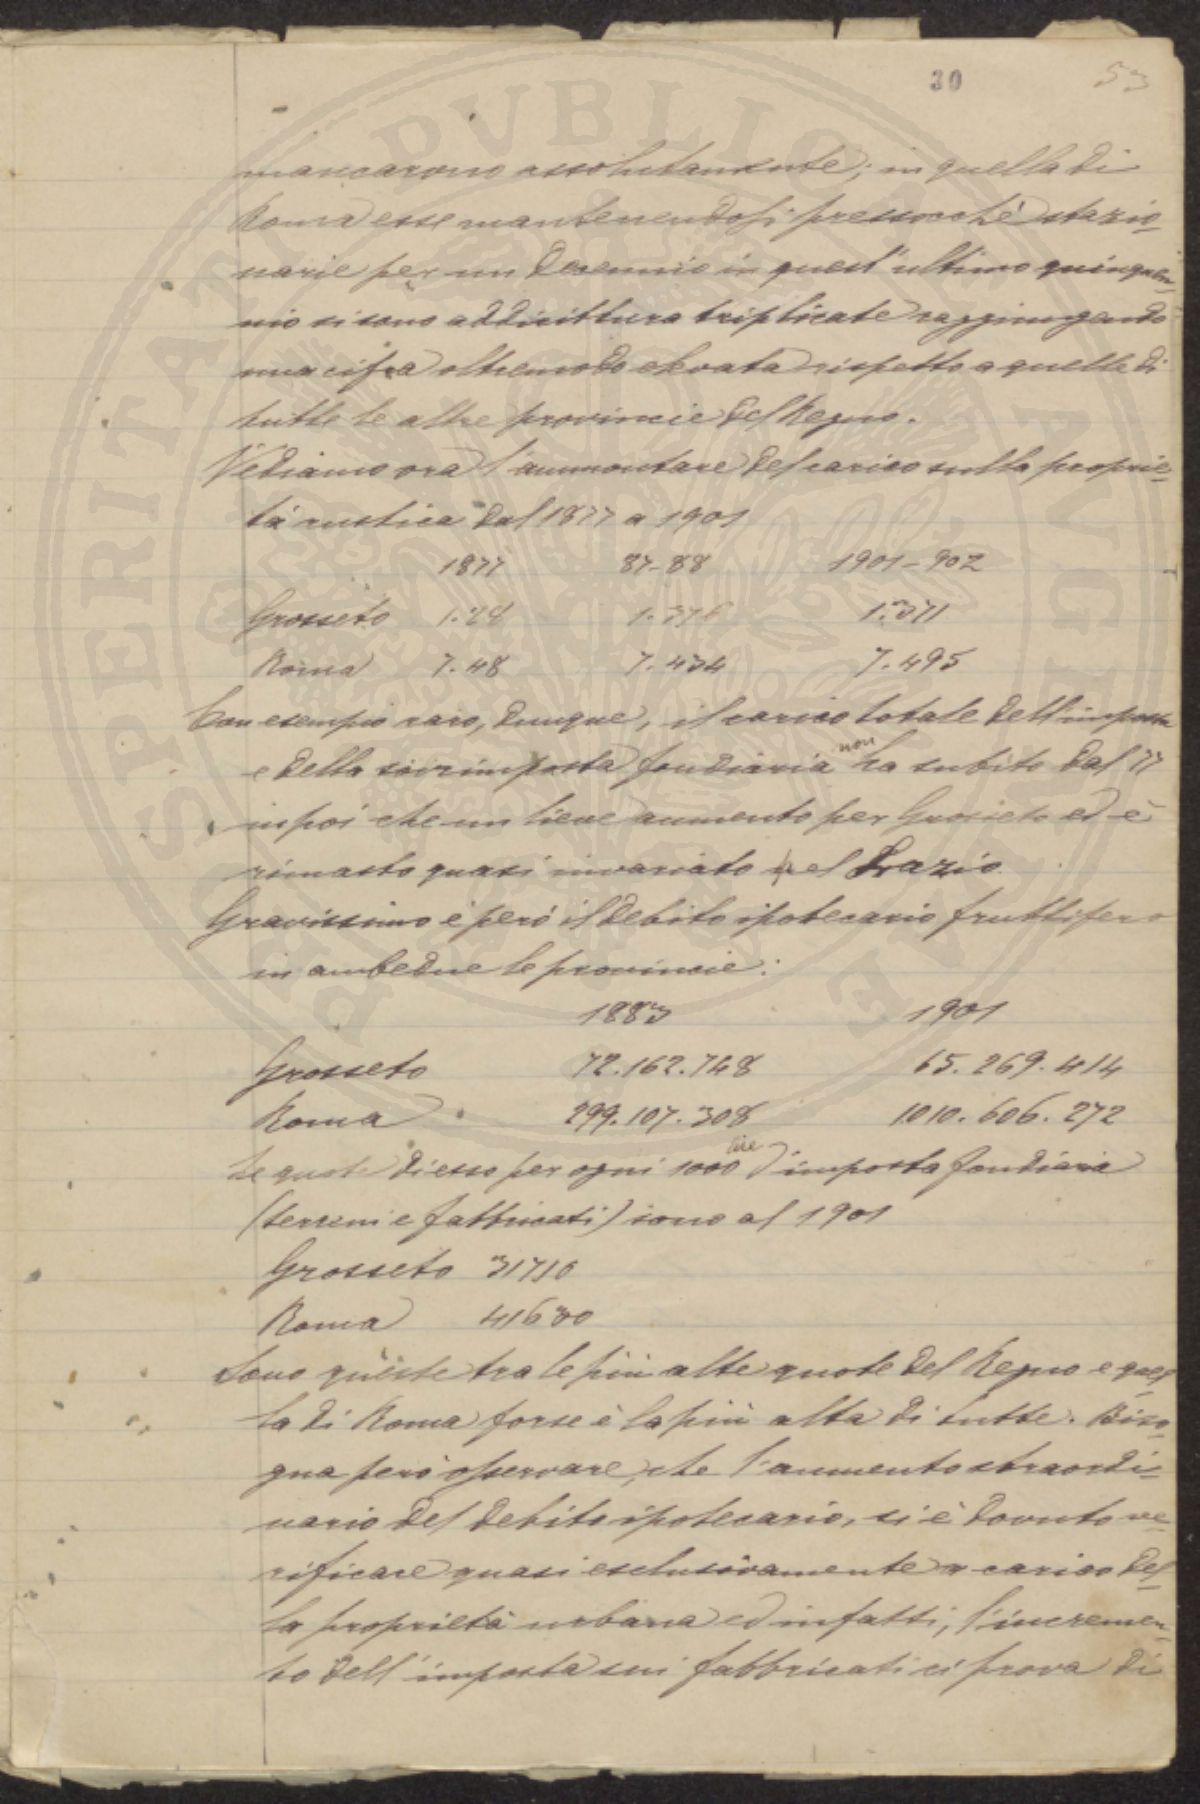 30 53
mancarono assolutamente; in quella di
Roma esse mantenendosi pressocchè stazio-
narie per un decennio in quest'ultimo quinquen-
nio si sono addirittura triplicate raggiungendo
una cifra oltremodo elevata rispetto a quelle di
tutte le altre provincie del Regno.
Vediamo ora l'ammontare del carico sulla proprie-
tà rustica dal 1877 a 1901
1877 87-88 1901-902
Grosseto 1.28 1.376 1.371
Roma 7.48 7.434 7.495
Con esempio raro, dunque, il carico totale dell'imposta
e della sovrimposta fondiaria non ha subito dal 77
in poi che un lieve aumento per Grosseto ed è
rimasto quasi invariato nel Lazio
Gravissimo è però il debito ipotecario fruttifero
in ambedue le provincie:
1883 1901
Grosseto 72.162.748 65.269.414
Roma 299.107.308 1010.606.272
Le quote di esso per ogni 1000 lire d'imposta fondiaria
(terreni e fabbricati) sono al 1901
Grosseto 31710
Roma 41630
Sono queste tra le più alte quote del Regno e quel-
la di Roma forse è la più alta di tutte. Biso-
gna però osservare, che l'aumento straordi-
nario del debito ipotecario, si è dovuto ve-
rificare quasi esclusivamente a carico del-
la proprietà urbana ed infatti, l'incremen-
to dell'imposta sui fabbricati ci prova di
SPERITATI PVBLICAE AVGENDAE PROSP